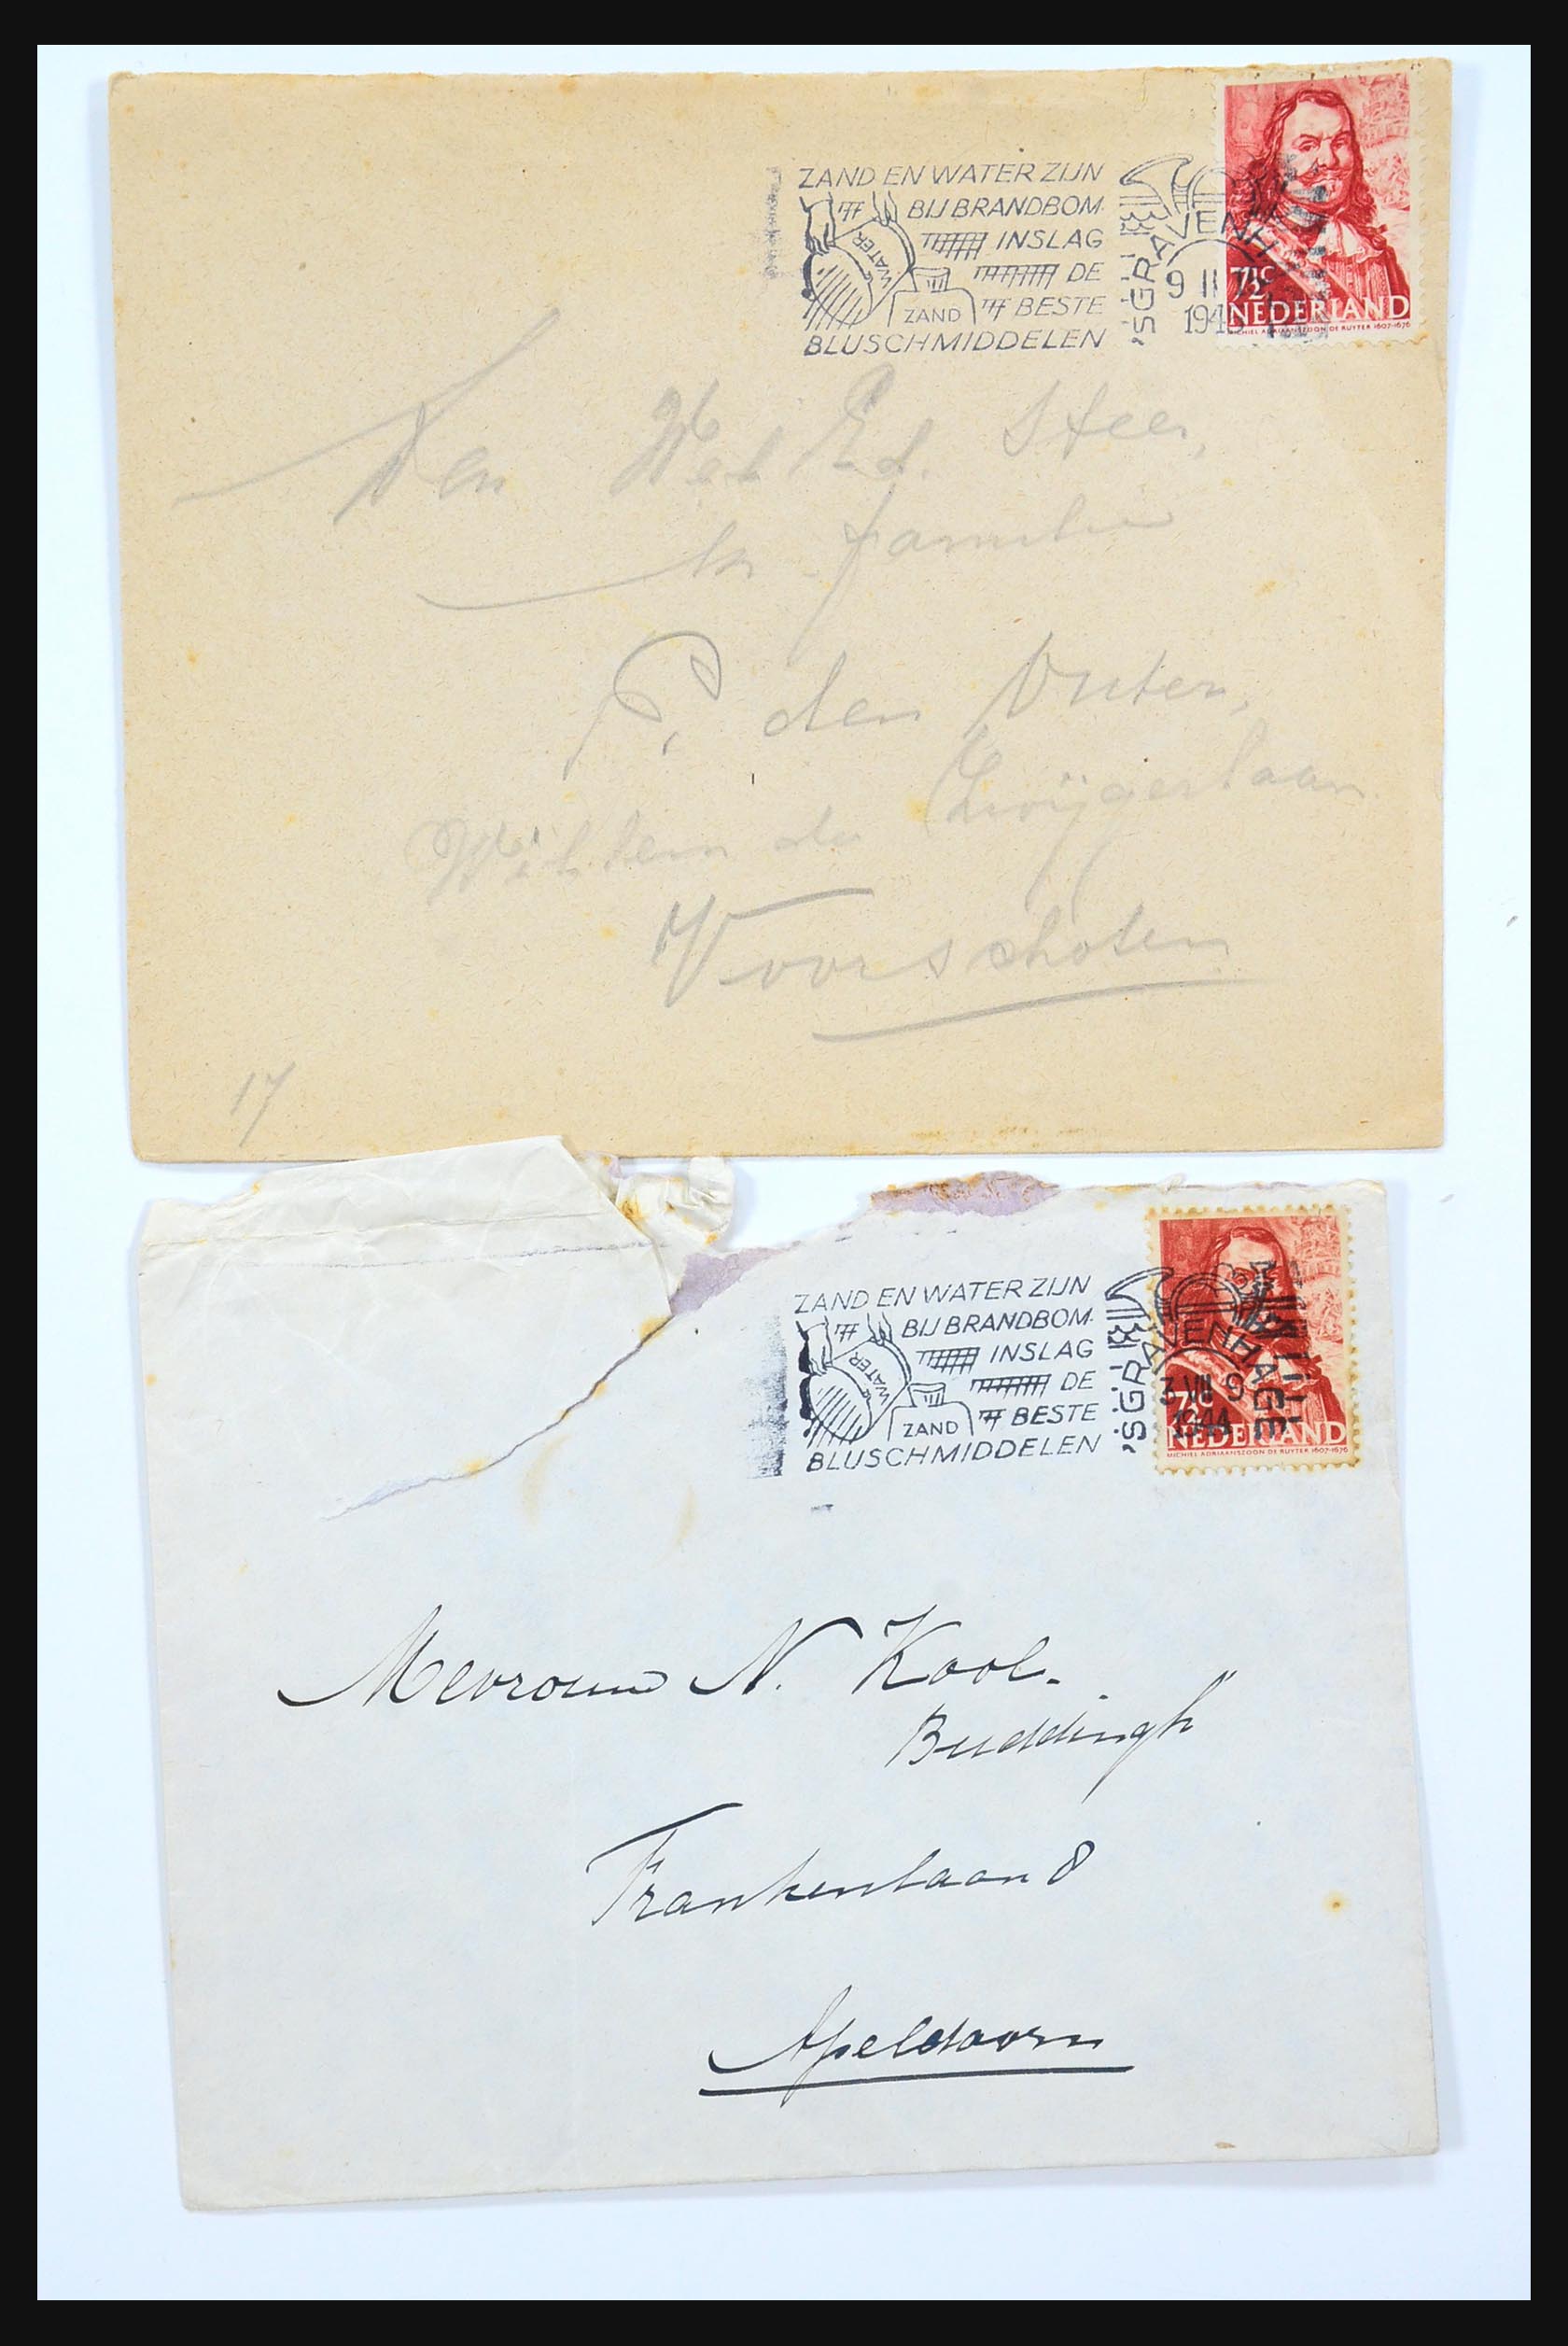 ZAND EN WATER ZIJN
BIJ BRANDBOM-
INSLAG
DE
BESTE
BLUSCHMIDDELEN
WATER
ZAND
'SGRAVENH
9 II
194
7½c
NEDERLAND
MICHIEL ADRIAANSZOON DE RUYTER 1607-1676
Den Wel Ed. Heer,
en familie
P. den Outer,
Willem de Zwijgerlaan
Voorschoten
17
ZAND EN WATER ZIJN
BIJ BRANDBOM-
INSLAG
DE
BESTE
BLUSCHMIDDELEN
WATER
ZAND
'SGRAVENHAGE
3 VII 9
1944
7½c
NEDERLAND
MICHIEL ADRIAANSZOON DE RUYTER 1607-1676
Mevrouw N. Kool-
Buddingh"
Frankenlaan 8
Apeldoorn